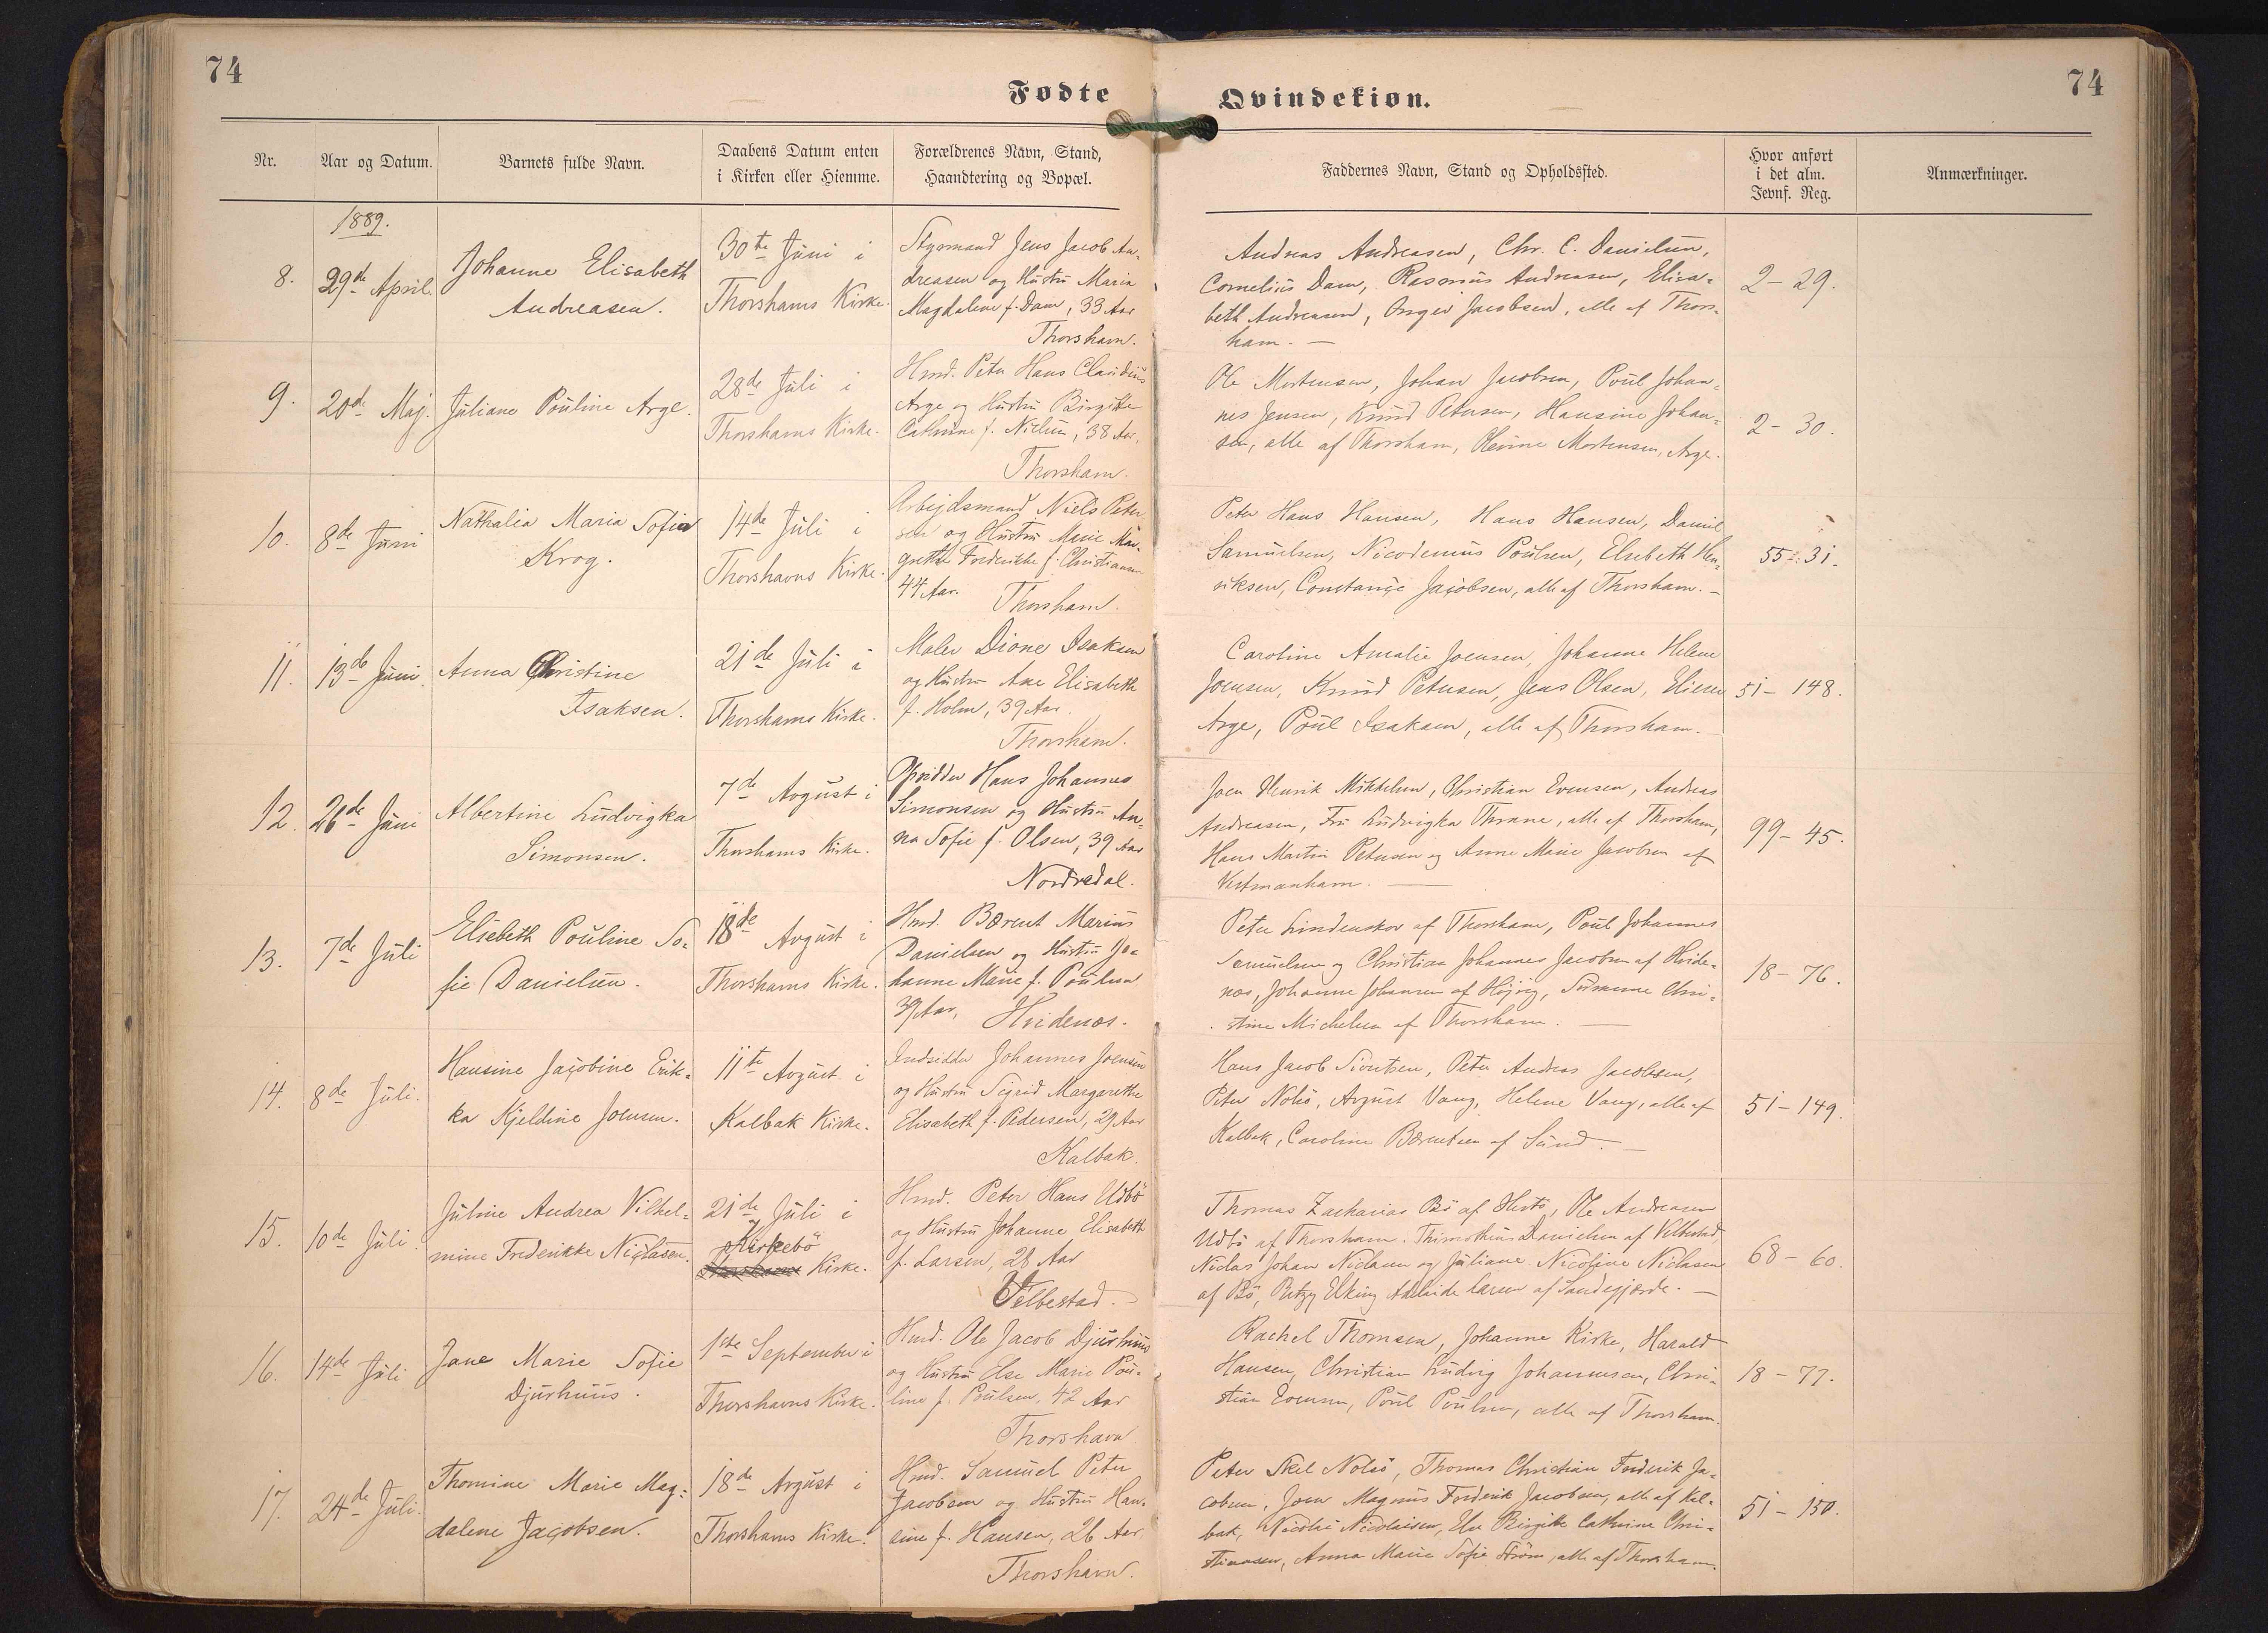 74
74
Fødte
Qvindekiøn.
Nr.
Aar og Datum.
Barnets fulde Navn.
Daabens Datum enten
i Kirken eller Hiemme.
Forældrenes Navn, Stand,
Haandtering og Bopæl.
Faddernes Navn, Stand og Opholdssted.
Hvor anført
i det alm.
Jevnf. Reg.
Anmærkninger.
1889.
8.
29de April
Johanne Elisabeth
Andreasen.
30te Juni i
Thorshavns Kirke.
Styrmand Jens Jacob An-
dreasen og Hustru Maria
Magdalene f. Dam, 33 Aar
Thorshavn.
Andreas Andreasen, Chr. C. Danielsen,
Cornelius Dam, Rasmus Andreasen, Elisa-
beth Andreasen, Jacobsen, alle af Thors-
havn. —
2 – 29.
9.
20de Maj.
Juliane Pouline Arge.
28de Juli i
Thorshavns Kirke.
Hmd. Peter Hans Claudius
Arge og Hustru Birgitte
Cathrine f. Nielsen, 38 Aar,
Thorshavn.
Ole Mortensen, Johan Jacobsen, Poul Johan-
nes Jensen, Knud Petersen, Hansine Johan-
sen, alle af Thorshavn, Mortensen, Arge.
2 – 30.
10.
8de Juni
Nathalia Maria Sofia
Krog.
14de Juli i
Thorshavns Kirke.
Arbejdsmand Niels Peter
sen og Hustru Marie Mar-
grethe Frederikke f. Christiansen
44 Aar.
Thorshavn.
Peter Hans Hansen, Hans Hansen, Daniel
Samuelsen, Nicodemus Poulsen, Elsebeth Hen-
riksen, Constance Jacobsen, alle af Thorshavn. –
55 – 31.
11.
13de Juni
Anna Christine
Isaksen.
21de Juli i
Thorshavns Kirke.
Maler Dione Isaksen
og Hustru Ane Elisabeth
f. Holm, 39 Aar.
Thorshavn.
Caroline Amalie Joensen, Johanne Helene
Joensen, Knud Petersen, Jens Olsen, Elieser
Arge, Poul Isaksen, alle af Thorshavn. –
51 – 148.
12.
26de Juni
Albertine Ludvigka
Simonsen.
7de August i
Thorshavns Kirke.
Opsidder Hans Johannes
Simonsen og Hustru An-
na Sofie f. Olsen, 39 Aar
Nordredal.
Joen Henrik Mikkelsen, Christian Evensen, Andreas
Andreasen, Fru Ludvigka Thrane, alle af Thorshavn,
Hans Martin Petersen og Anne Marie Jacobsen af
Vestmanhavn. —
99 – 45.
13.
7de Juli
Elsebeth Pouline So-
fie Danielsen.
18de August i
Thorshavns Kirke.
Hmd. Bærent Marius
Danielsen og Hustru Jo-
hanne Marie f. Poulsen
39 Aar,
Hvidenæs.
Peter Lindenskov af Thorshavn, Poul Johannes
Samuelsen og Christian Johannes Jacobsen af Hvide-
næs, Johanne Johansen af Højvig, Susanne Chri-
stine Michelsen af Thorshavn. —
18 – 76.
14.
8de Juli.
Hansine Jacobine Erik-
ka Kjeldine Joensen.
11te August i
Kalbak Kirke.
Indsidder Johannes Joensen
og Hustru Sigrid Margarethe
Elisabeth f. Pedersen, 29 Aar
Kalbak.
Hans Jacob Sivertsen, Peter Andreas Jacobsen,
Peter Nolsø, August Vang, Helene Vang, alle af
Kalbak, Caroline Bærentsen af Sund. —
51 – 149.
15.
10de Juli
Juline Andrea Vilhel-
mine Frederikke Niclasen.
21de Juli i
Kirkebø
Thorshavns Kirke.
Hmd. Peter Hans Udbø
og Hustru Johanne Elisabeth
f. Larsen, 28 Aar
Velbestad. –
Thomas Zacharias Bø af Hestø, Ole Andreasen
Udbø af Thorshavn. Thimotheus Danielsen af Velbestad,
Niclas Johan Niclasen og Juliane Nicoline Niclasen
af Bø, Larsen af Sandegjærde. —
68 – 60.
16.
14de Juli
Jane Marie Sofie
Djurhuus.
1ste September i
Thorshavns Kirke.
Hmd. Ole Jacob Djurhuus
og Hustru Else Marie Pou-
line f. Poulsen, 42 Aar
Thorshavn
Rachel Thomsen, Johanne Kirke, Harald
Hansen, Christian Ludvig Johannesen, Chri-
stian Evensen, Poul Poulsen, alle af Thorshavn.
18 – 77.
17.
24de Juli.
Thomine Marie Mag-
dalene Jacobsen.
18de August i
Thorshavns Kirke.
Hmd. Samuel Peter
Jacobsen og Hustru Han-
sine f. Hansen, 26 Aar.
Thorshavn.
Peter Skel Nolsø, Thomas Christian Frederik Ja-
cobsen, Joen Magnus Frederik Jacobsen, alle af Kal-
bak, Nicolai Nicolaisen, Else Birgitte Cathrine Chri-
stiansen, Anna Marie Sofie Strøm, alle af Thorshavn.
51 – 150.